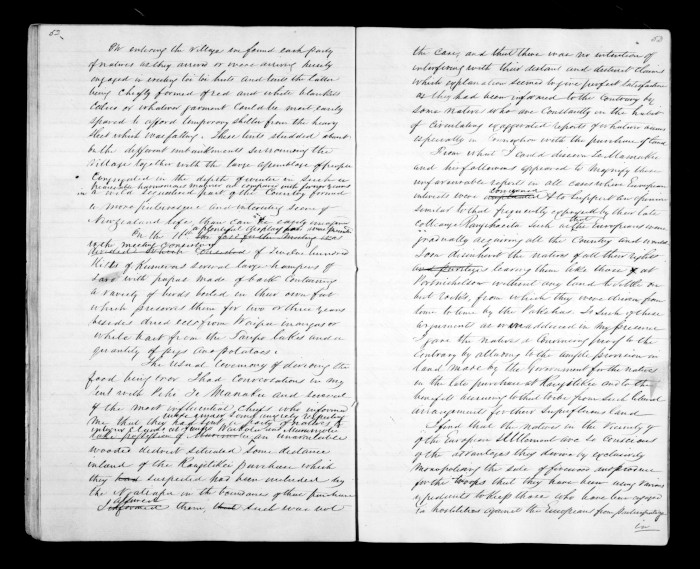 52
On entering the village we found each party
of natives as they arrive or were arriving busily
engaged in erecting huts and tents the latter
being chiefly formed of red and white blankets
Calico or whatever garment could be most easily
spared to afford temporary shelter from the heavy
sleet which was falling. These tents studded about
in the different embankments surrounding the
village together with the large assemblage of people
Congregated in the depth of winter in such a
in a wild secluded part of the Country formed
a more picturesque and interesting scene of
Newzealand life than can be easily imagined
On the 11th
the meeting
consisted of Twelve hundred
Kits of Kumeras several large hampers of
Taro with papas made of bark containing
a variety of birds boiled in their own fat
which preserves them for two or three years
besides dried eels from Waipu
White bait from the Taupo lakes and a
quantity of pigs and potatoes.
The usual Ceremony of dividing the
food being over I had conversations in my
tent with Pehi Te Manaku and several
of the most influential Chiefs who informed
me that they had sent a party of natives to
take possession of an unavailable
wooded district situated some distance
inland of the Rangitikei purchase which
they had suspected had been included by
the Ngatiapa in the boundaries of that purchase
I assured them, that such was not
53
the case, and that there was no intention of
interfering with their distant and distinct claims
which explanation seemed to give perfect satisfaction
as they had been informed to the contrary by
some natives who are constantly in the habit
of circulating exaggerated reports of whatever nature
especially in connection with the purchase of land.
From what I could discern Te Mamaku
and his followers appeared to magnify these
unfavourable reports in all cases where European
interests were concerned & to support an opinion
similar to that frequently expressed by their late
Colleague Rangihaeata that the Europeans were
gradually acquiring all the Country and would
soon disinherit the natives of all their rights
leaving them like those at
Port Nicholson without any land to settle on
but rocks, from which they were driven from
time to time by the Pakehas. To such of these
arguments as were adduced in my presence
I gave the natives a convincing proof to the
contrary by alluding to the ample provision in
land made by the Government for the natives
in the late purchase at Rangitikei and to the
benefits accruing to that tribe from such liberal
arrangement for their superfluous land.
I find that the natives in the vicinity
of the European settlement are so conscious
of the advantages they derive by exclusively
monopolising the sale of firewood and produce
for the troops that they have been using various
expedients to keep those who have been engaged
in hostilities against the Europeans from participating
in